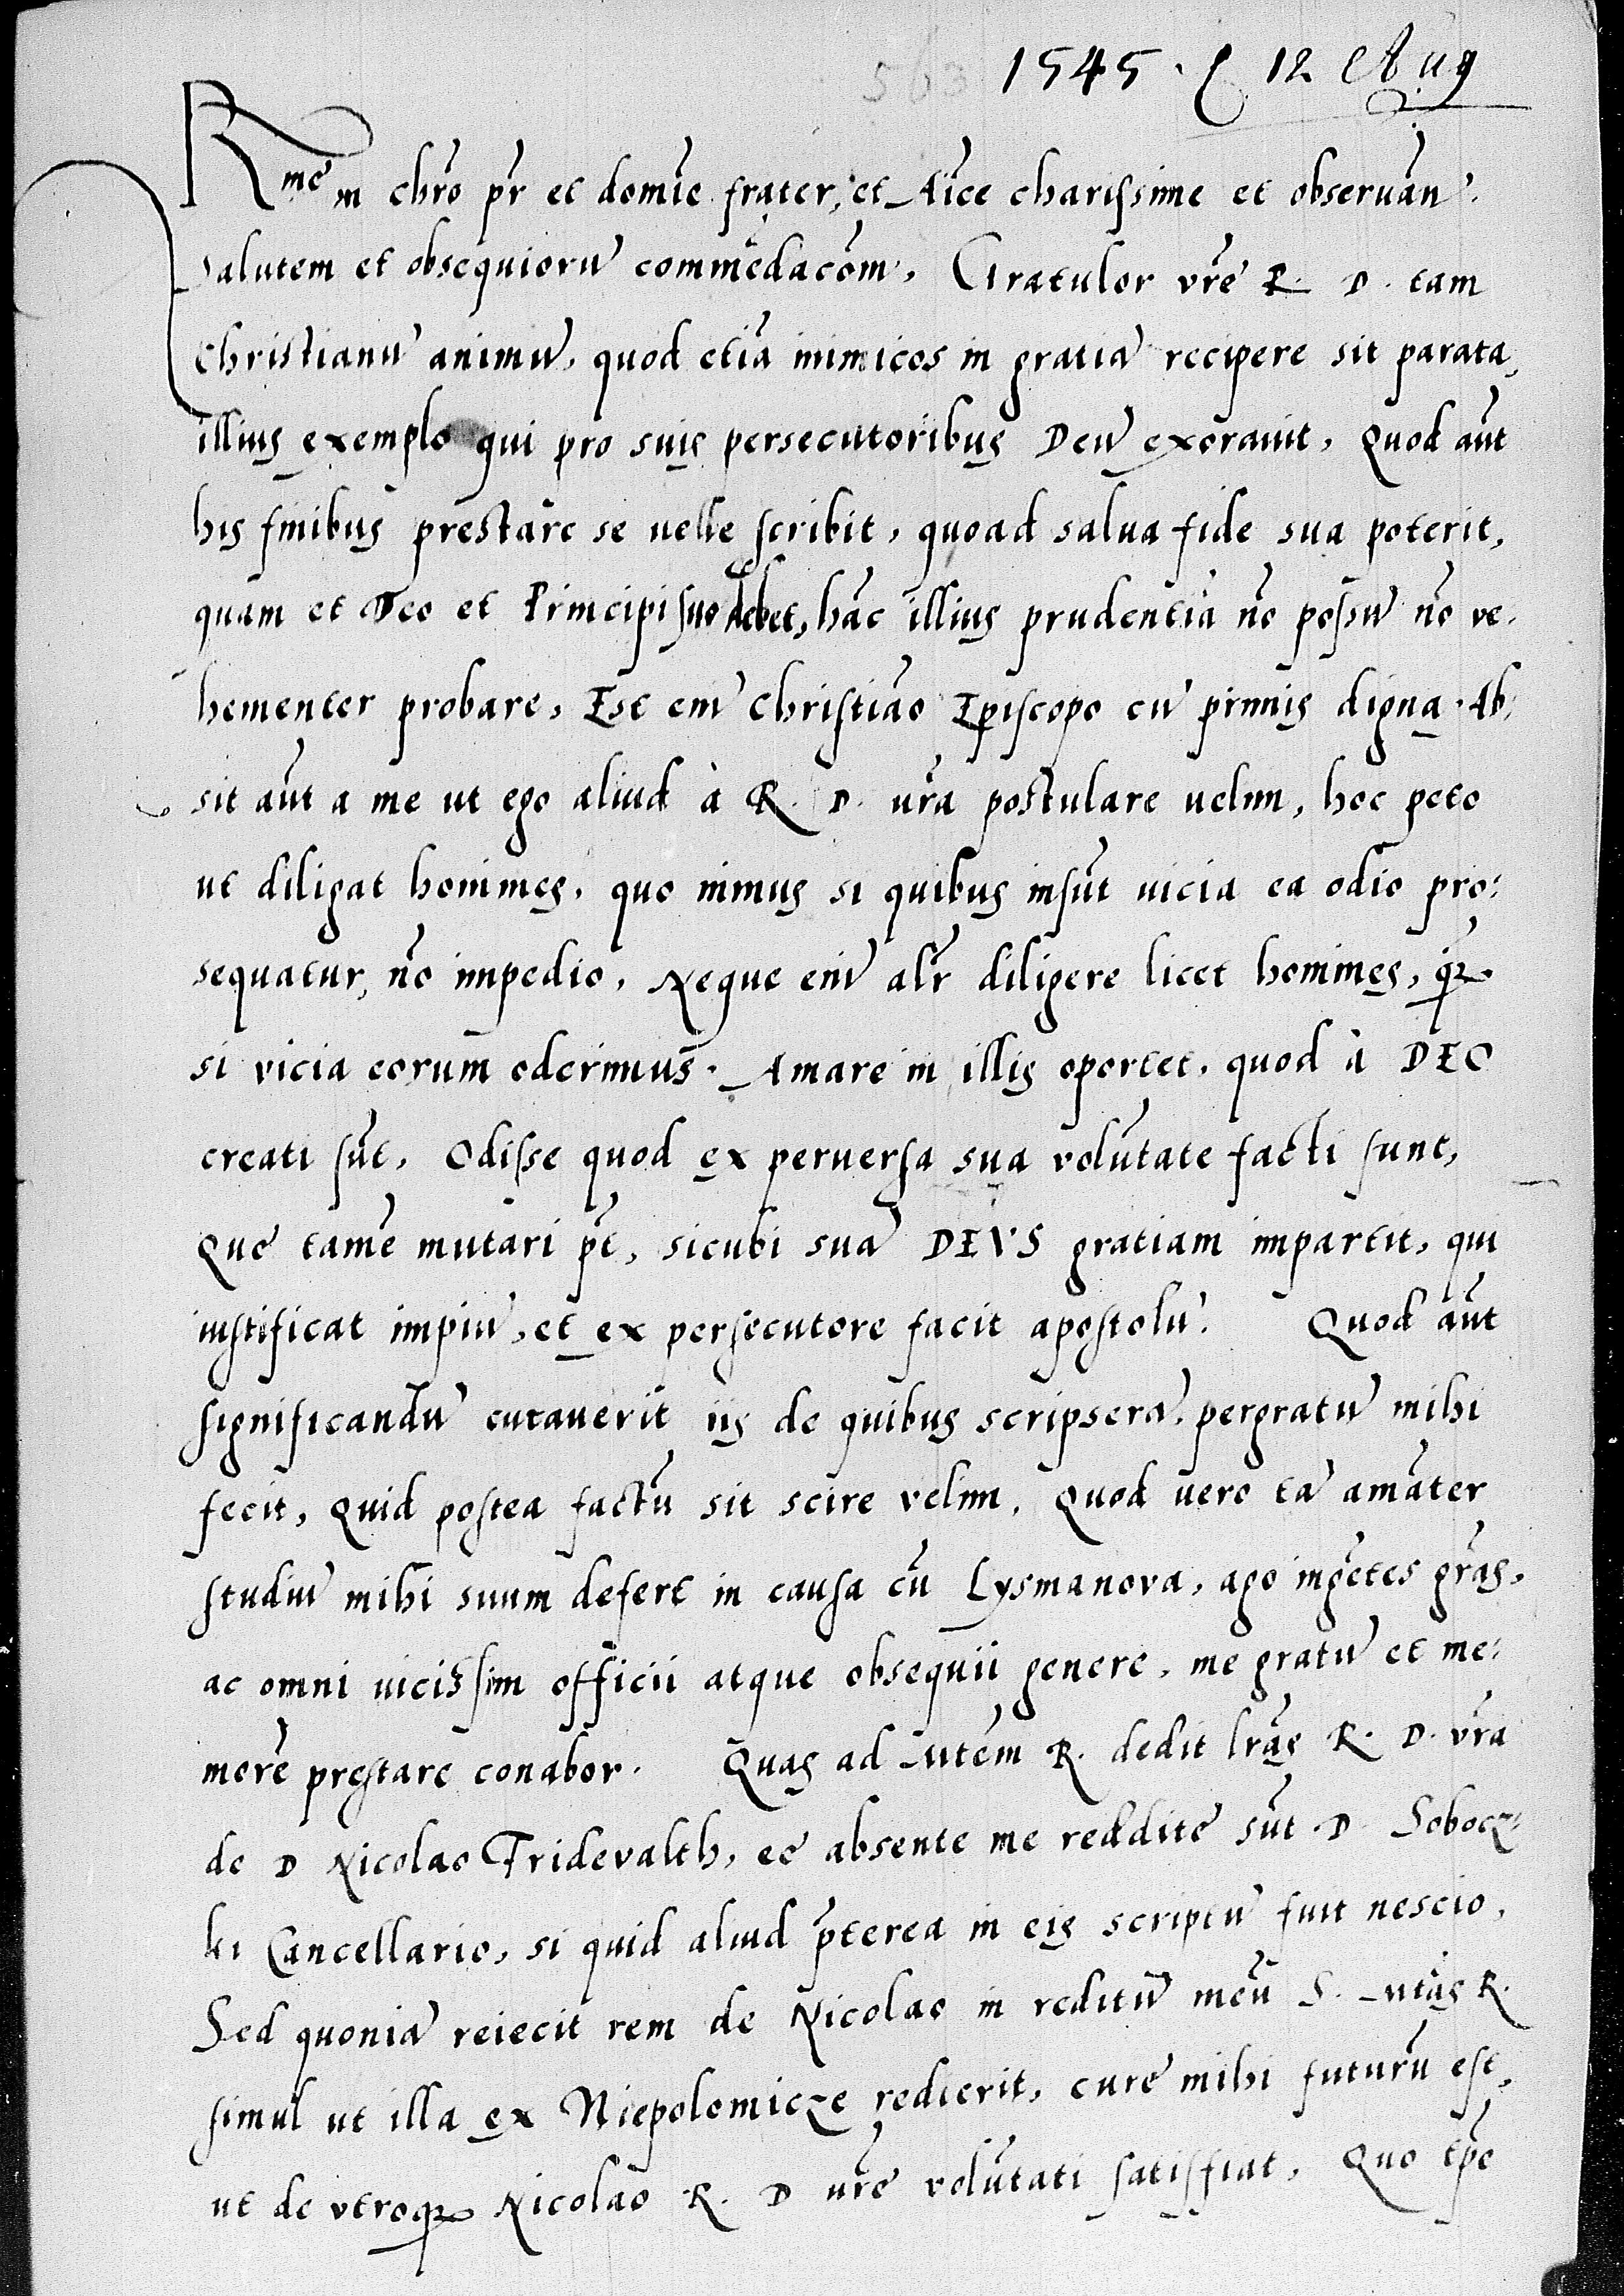 563 1545 · 12 Aug
Rme in chro pr et domie frater, et Aice charissime et observan.
Salutem et obsequioru commedacom. Gratulor vre R. D. tam
Christianu animu, quod etiā inimicos in gratiā recipere sit parata,
illius exemplo qui pro suis persecutoribus Deū exoravit, Quod aūt
his finibus prestare se uelle scribit, quoad salva fide sua poterit,
quam et Deo et Principi suo debet, hāc illius prudentiā nō possū nō ve-
hementer probare, Est eni Christiāo Episcopo cū primis digna. Ab-
sit aūt a me ut ego aliud à R. D. ura postulare uelim, hoc peto
ut diligat homines, quo minus si quibus insūt uicia ea odio pro-
sequatur, nō impedio, Neque eni alr diligere licet homines, q̄
si vicia eorum oderimus. Amare in illis oportet, quod à DEO
creati sūt, Odisse quod ex perversa sua volūtate facti sunt,
Que tamē mutari pt, sicubi suā DEVS gratiam impartit, qui
iustificat impiū, et ex persecutore facit apostolū. Quod aūt
significandū curaverit iis de quibus scripserā, pergratū mihi
fecit, Quid postea factū sit scire velim, Quod uero tā amāter
studiū mihi suum defert in causa cū Lysmanova, ago ingētes grās,
ac omni uicissim officii atque obsequii genere, me gratū et me-
morē prestare conabor. Quas ad Mtem R. dedit lrās R. D. vra
de D Nicolao Fridevalth, ee absente me reddite sūt D Sobocz-
ki Cancellario, si quid aliud pterea in eis scriptū fuit nescio,
Sed quoniā reiecit rem de Nicolao in reditū meū S. Mtas R.
simul ut illa ex Niepolomicze redierit, cure mihi futurū est,
ut de vtroq Nicolao R. D ure volūtati satisfiat, Quo tpe